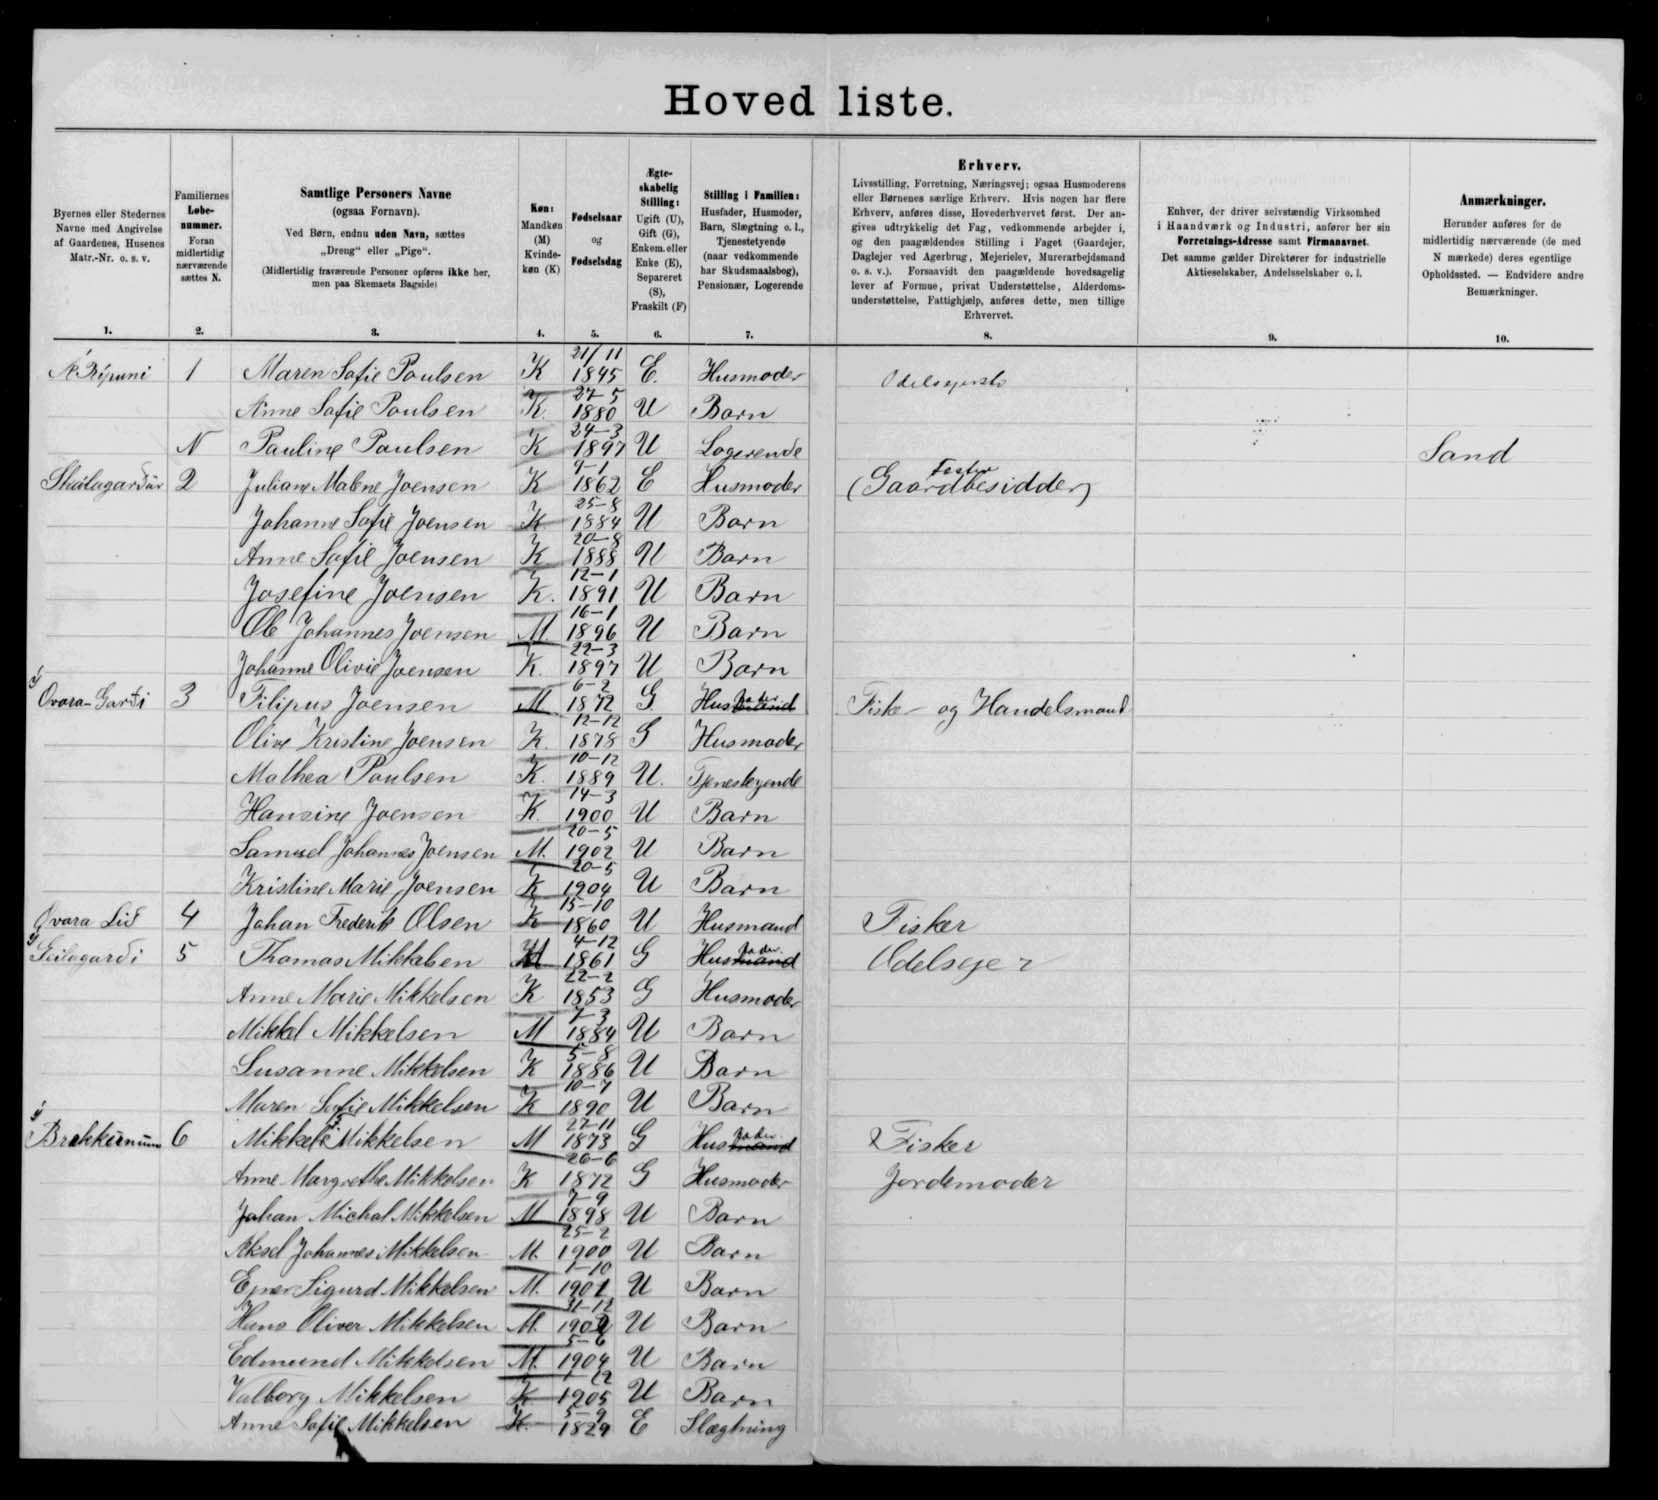 Hoved liste.
Byernes eller Stedernes Navne med Angivelse af Gaardenes, Husenes Matr.-Nr. o. s. v.
1.
Familiernes Løbe-nummer. Foran midlertidig nærværende sættes N.
2.
Samtlige Personers Navne
(ogsaa Fornavn).
Ved Børn, endnu uden Navn, sættes
„Dreng“ eller „Pige“.
(Midlertidig fraværende Personer opføres ikke her, men paa Skemaets Bagside)
3.
Køn: Mandkøn (M) Kvinde-køn (K)
4.
Fødselsaar og Fødselsdag
5.
Ægte-skabelig Stilling: Ugift (U), Gift (G), Enkem. eller Enke (E), Separeret (S), Fraskilt (F)
6.
Stilling i Familien: Husfader, Husmoder, Barn, Slægtning o. l., Tjenestetyende (naar vedkommende har Skudsmaalsbog), Pensionær, Logerende
7.
Erhverv.
Livsstilling, Forretning, Næringsvej; ogsaa Husmoderens eller Børnenes særlige Erhverv. Hvis nogen har flere Erhverv, anføres disse, Hovederhvervet først. Der an-gives udtrykkelig det Fag, vedkommende arbejder i, og den paagældendes Stilling i Faget (Gaardejer, Daglejer ved Agerbrug, Mejerielev, Murerarbejdsmand o. s. v.). Forsaavidt den paagældende hovedsagelig lever af Formue, privat Understøttelse, Alderdoms-understøttelse, Fattighjælp, anføres dette, men tillige Erhvervet.
8.
Enhver, der driver selvstændig Virksomhed i Haandværk og Industri, anfører her sin Forretnings-Adresse samt Firmanavnet. Det samme gælder Direktører for industrielle Aktieselskaber, Andelsselskaber o. l.
9.
Anmærkninger.
Herunder anføres for de midlertidig nærværende (de med N mærkede) deres egentlige Opholdssted. — Endvidere andre Bemærkninger.
10.
1 Maren Sofie Poulsen K 21/11 1845 E. Husmoder
Anne Sofie Poulsen K. 27-5 1880 U Barn
N Pauline Poulsen K 24-3 1897 U Logerende Sand
2 Juliane Malene Joensen K 9-1 1862 E Husmoder (Gaardbesidder)
Johanne Sofie Joensen K 25-8 1884 U Barn
Anne Sofie Joensen K 20-8 1888 U Barn
Josefine Joensen K. 12-1 1891 U Barn
Ole Johannes Joensen M. 16-1 1896 U Barn
Johanne Olivie Joensen K. 22-3 1897 U Barn
Ovara-Garði 3 Filipus Joensen M 6-2 1872 G. Husfader Fisker og Handelsmand
Olive Kristine Joensen K. 12-12 1878 G Husmoder
Mathea Poulsen K. 10-12 1889 U. Tjenesteyende
Hansine Joensen K. 14-3 1900 U Barn
Samuel Johannes Joensen M. 20-5 1902 U Barn
Kristine Marie Joensen K 20-5 1904 U Barn
Ovara Lið 4 Johan Frederik Olsen K 15-10 1860 U Husmand Fisker
5 Thomas Mikkelsen M 4-12 1861 G Husfader Odelsejer
Anne Marie Mikkelsen K 22-2 1853 G Husmoder
Mikkel Mikkelsen M 7-3 1884 U Barn
Susanne Mikkelsen K 5-8 1886 U Barn
Maren Sofie Mikkelsen K 10-7 1890 U Barn
6 Mikkel Mikkelsen M 27-11 1873 G Husfader Fisker
Anne Margrethe Mikkelsen K 26-6 1872 G Husmoder Jordemoder
Johan Michal Mikkelsen M 7-9 1898 U Barn
Aksel Johannes Mikkelsen M. 25-2 1900 U Barn
Ejner Sigurd Mikkelsen M. 1-10 1901 U Barn
Hans Oliver Mikkelsen M. 31-12 1902 U Barn
Edmund Mikkelsen M. 5-6 1904 U Barn
Valborg Mikkelsen K 1905 U Barn
Anne Sofie Mikkelsen K. 5-9 1829 E Slægtning